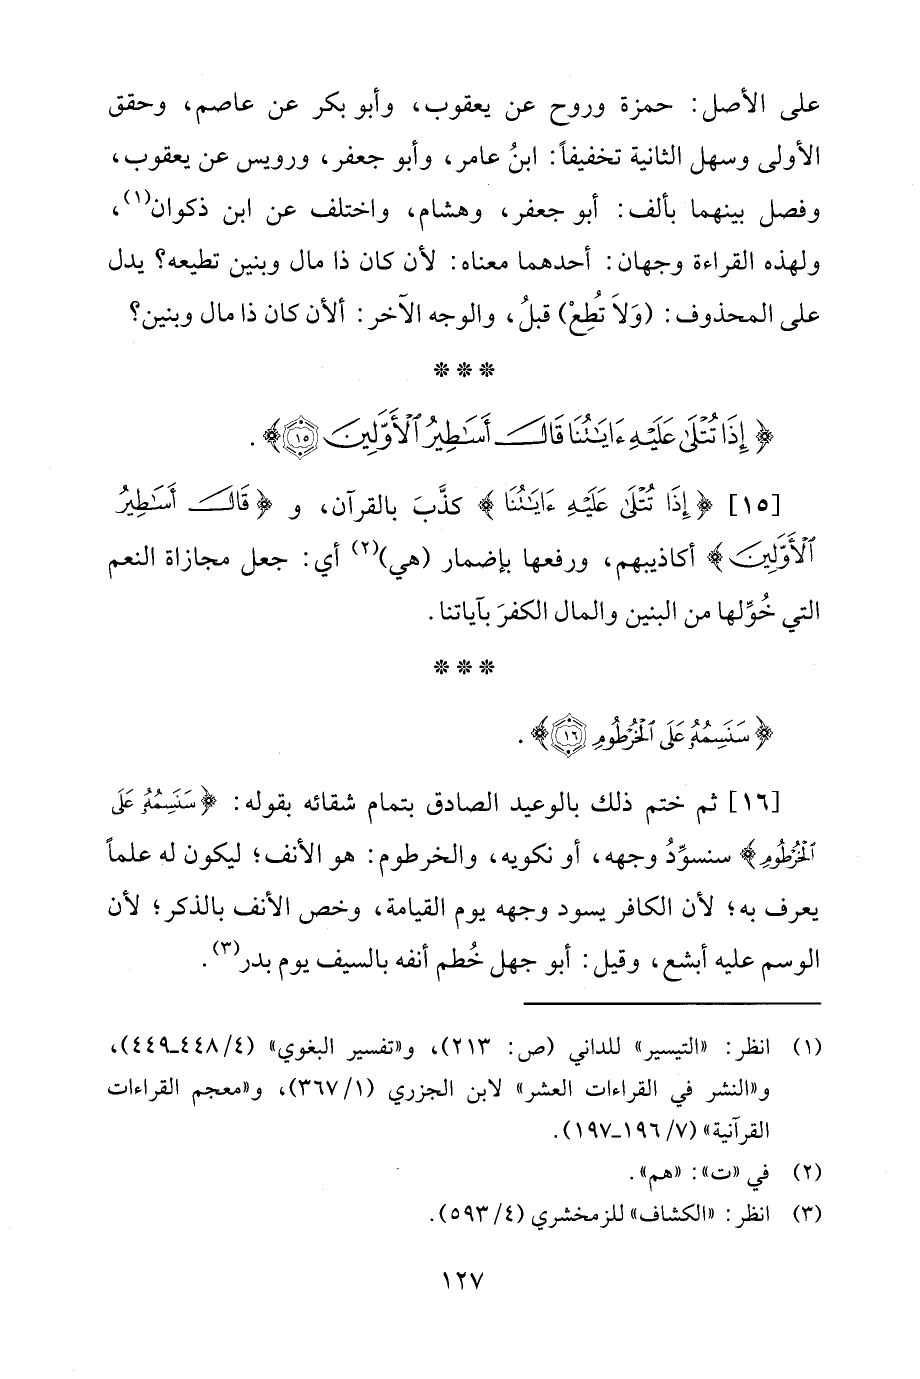 على الأصل: حمزة وروح عن يعقوب، وأبو بكر عن عاصم، وحقق
الأولى وسهل الثانية تخفيفاً: ابنُ عامر، وأبو جعفر، ورويس عن يعقوب،
وفصل بينهما بألف: أبو جعفر، وهشام، واختلف عن ابن ذكوان(١)،
ولهذه القراءة وجهان: أحدهما معناه: لأن كان ذا مال وبنين تطيعه؟ يدل
على المحذوف: (وَلاَ تُطِعْ) قبلُ، والوجه الآخر: ألأن كان ذا مال وبنين؟
* * *
﴿إِذَا تُتْلَىٰ عَلَيْهِ ءَايَٰتُنَا قَالَ أَسَٰطِيرُ ٱلْأَوَّلِينَ ۝١٥﴾.
[١٥] ﴿إِذَا تُتْلَىٰ عَلَيْهِ ءَايَٰتُنَا﴾ كذَّبَ بالقرآن، و ﴿قَالَ أَسَٰطِيرُ
ٱلْأَوَّلِينَ﴾ أكاذيبهم، ورفعها بإضمار (هي)(٢) أي: جعل مجازاة النعم
التي خُوِّلها من البنين والمال الكفرَ بآياتنا.
* * *
﴿سَنَسِمُهُۥ عَلَى ٱلْخُرْطُومِ ۝١٦﴾.
[١٦] ثم ختم ذلك بالوعيد الصادق بتمام شقائه بقوله: ﴿سَنَسِمُهُۥ عَلَى
ٱلْخُرْطُومِ﴾ سنسوِّدُ وجهه، أو نكويه، والخرطوم: هو الأنف؛ ليكون له علماً
يعرف به؛ لأن الكافر يسود وجهه يوم القيامة، وخص الأنف بالذكر؛ لأن
الوسم عليه أبشع، وقيل: أبو جهل خُطم أنفه بالسيف يوم بدر(٣).
(١) انظر: «التيسير» للداني (ص: ٢١٣)، و«تفسير البغوي» (٤/ ٤٤٨ـ٤٤٩)،
و«النشر في القراءات العشر» لابن الجزري (١/ ٣٦٧)، و«معجم القراءات
القرآنية» (٧/ ١٩٦ـ١٩٧).
(٢) في «ت»: «هم».
(٣) انظر: «الكشاف» للزمخشري (٤/ ٥٩٣).
١٢٧